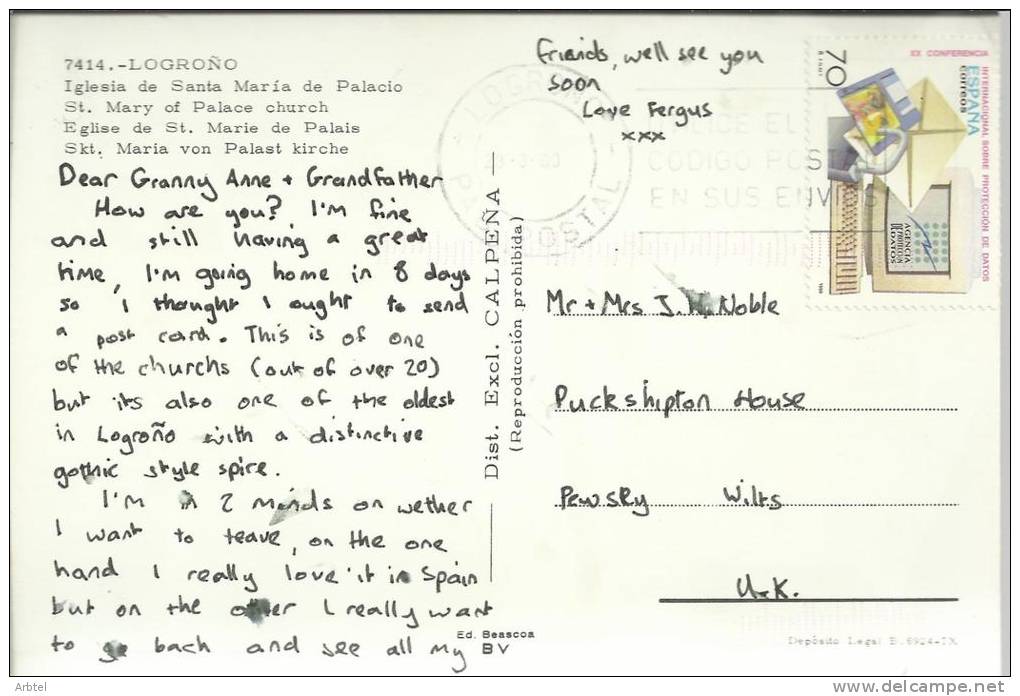 7414.-LOGROÑO
Iglesia de Santa María de Palacio
St. Mary of Palace church
Eglise de St. Marie de Palais
Skt. Maria von Palast kirche
Dear Granny Anne + Grandfather
How are you? I'm fine
and still having a great
time, I'm going home in 8 days
so I thought I ought to send
a post card. This is of one
of the churchs (out of over 20)
but its also one of the oldest
in Logroño with a distinctive
gothic style spire.
I'm in 2 minds on wether
I want to leave, on the one
hand I really love it in Spain
but on the other I really want
to go back and see all my
friends, well see you
soon
Love Fergus
xxx
Dist. Excl. CALPEÑA
(Reproducción prohibida)
Ed. Beascoa
BV
LOGROÑO
POSTAL
CODIGO POSTAL
EN SUS ENVIOS
70
XX CONFERENCIA
INTERNACIONAL SOBRE PROTECCIÓN DE DATOS
ESPAÑA
correos
AGENCIA
PROTECCIÓN
DATOS
Mr + Mrs J.W. Noble
Puckshipton House
Pewsey Wilts
U.K.
Depósito Legal B. 6924-IX
Arbtel
delcampe.net